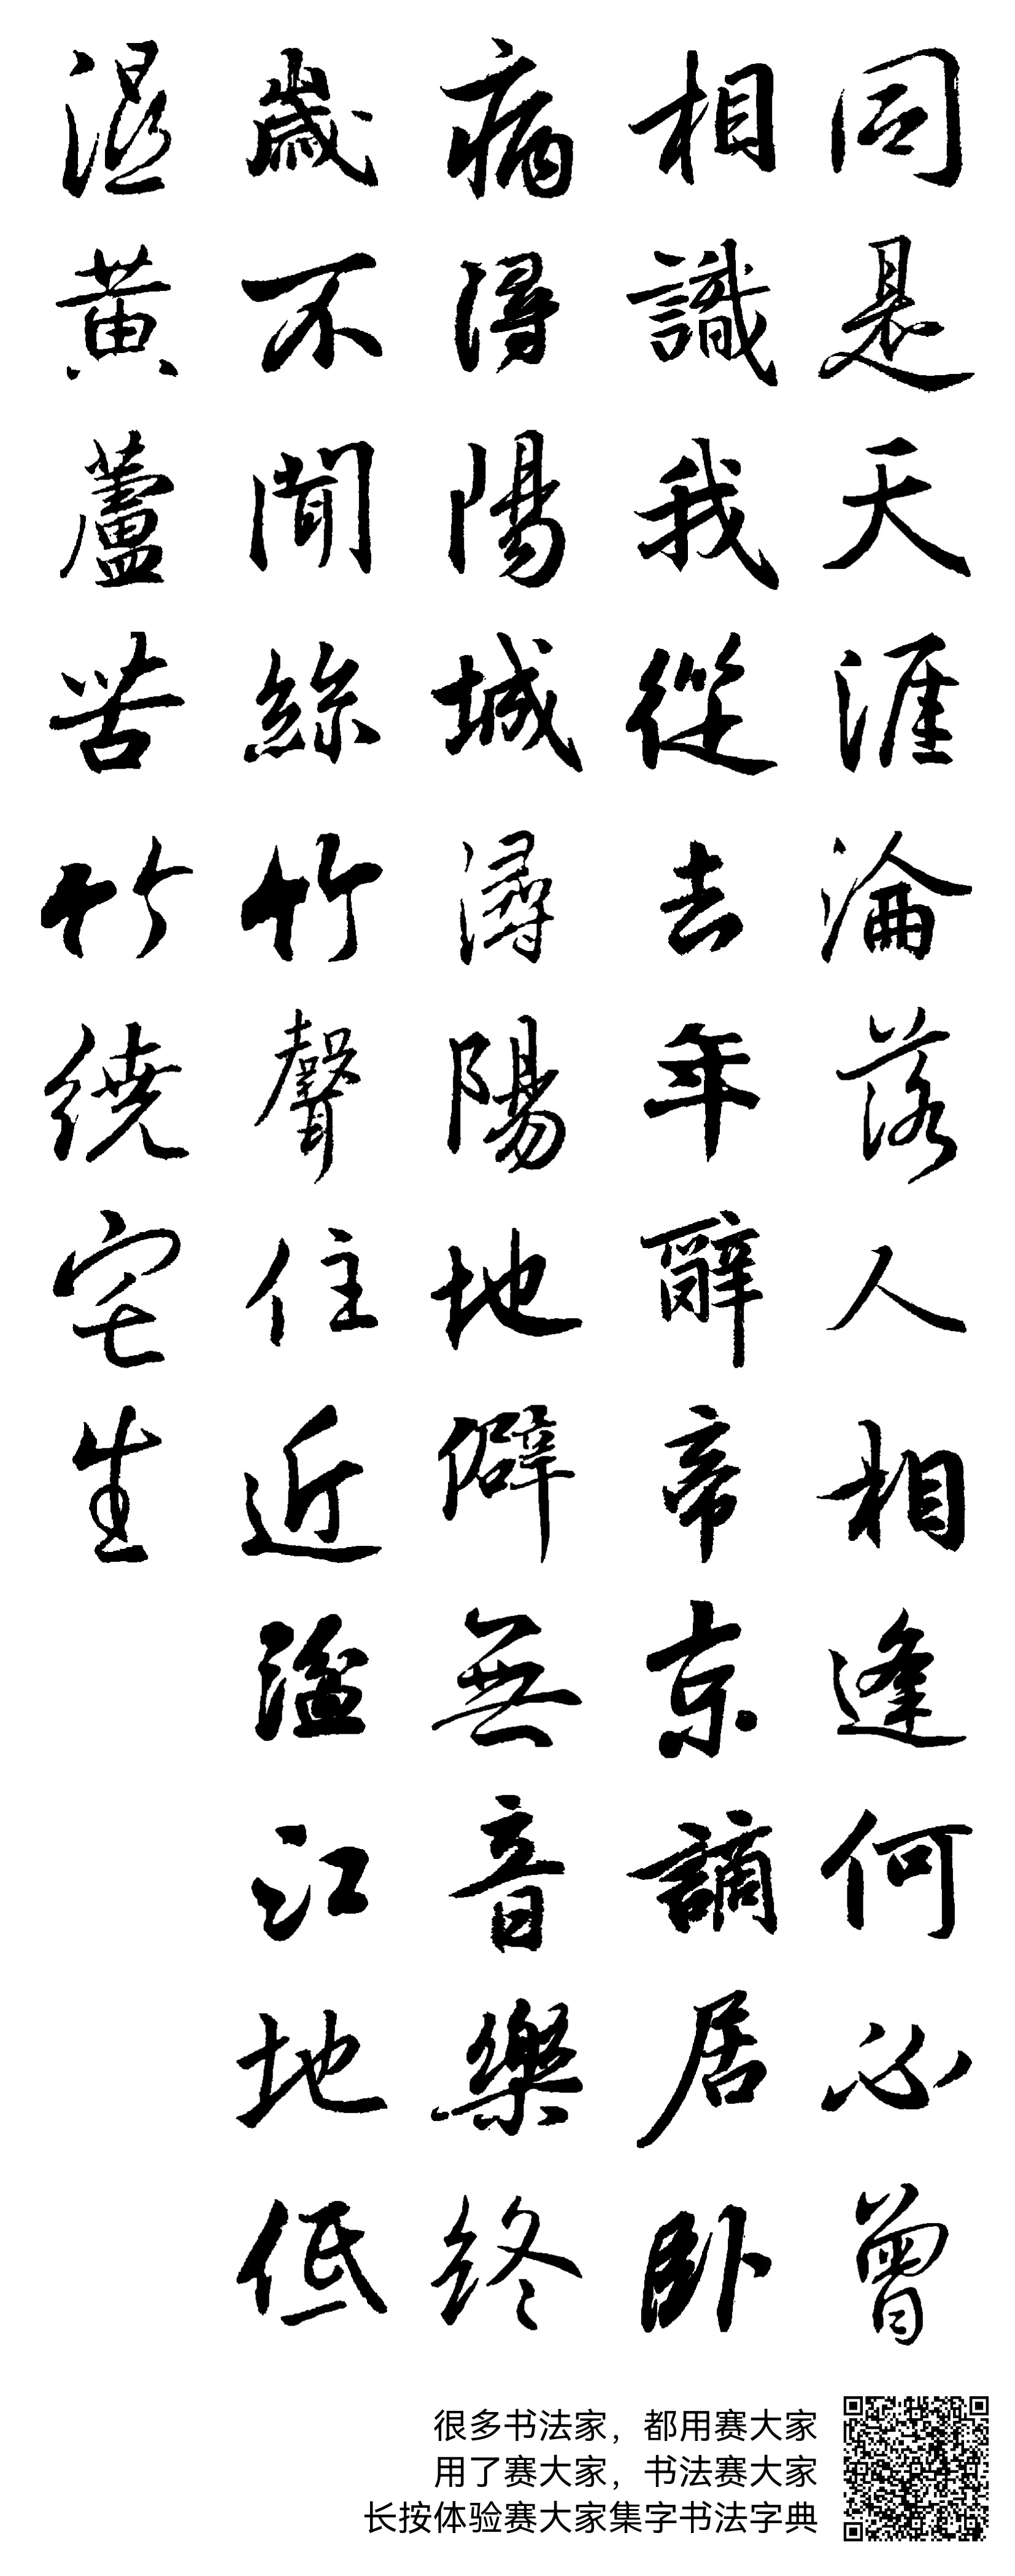 同是天涯淪落人相逢何必曾
相識我從去年辭帝京謫居卧
病潯陽城潯陽地僻無音樂終
歲不聞絲竹聲住近湓江地低
濕黄蘆苦竹繞宅生
很多书法家，都用赛大家
用了赛大家，书法赛大家
长按体验赛大家集字书法字典